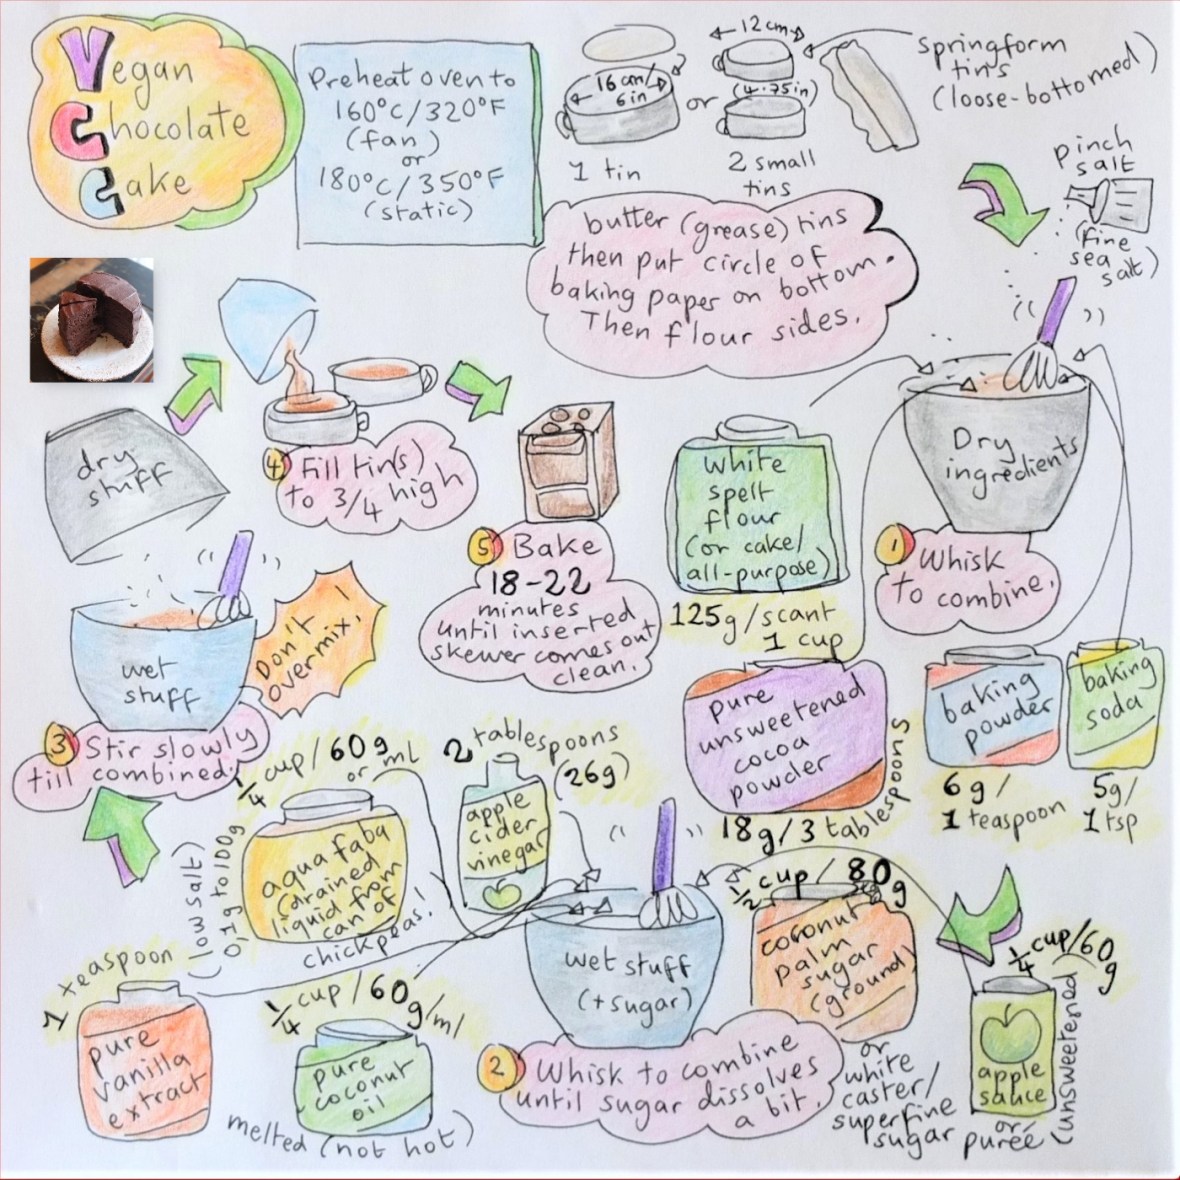 Vegan
Chocolate
Cake
Preheat oven to
160°C/320°F
(fan)
or
180°C/350°F
(static)
16 cm/
6 in
1 tin
or
12 cm
(4.75in)
2 small
tins
springform
tins
(loose-bottomed)
butter (grease) tins
then put circle of
baking paper on bottom.
Then flour sides.
pinch
salt
(fine
sea
salt)
Dry
ingredients
1 Whisk
to combine.
white
spelt
flour
(or cake/
all-purpose)
125g/scant
1 cup
pure
unsweetened
cocoa
powder
18g/3 tablespoons
baking
powder
6g/
1 teaspoon
baking
soda
5g/
1 tsp
wet stuff
(+sugar)
2 Whisk to combine
until sugar dissolves
a bit.
1/2 cup / 80g
coconut
palm
sugar
(ground)
or
white
caster/
superfine
sugar
1/4 cup/60
g
apple
sauce
or
purée
(unsweetened)
2 tablespoons
(26g)
apple
cider
vinegar
1/4 cup/60g
or ml
aqua faba
(drained
liquid from
can of
chickpeas!
(low salt)
0,1g to 100g
1 teaspoon
pure
vanilla
extract
1/4 cup/60g/ml
pure
coconut
oil
melted (not hot)
dry
stuff
wet
stuff
Don't
overmix!
3 Stir slowly
till combined.
4 Fill tin(s)
to 3/4 high
5 Bake
18-22
minutes
until inserted
skewer comes out
clean.